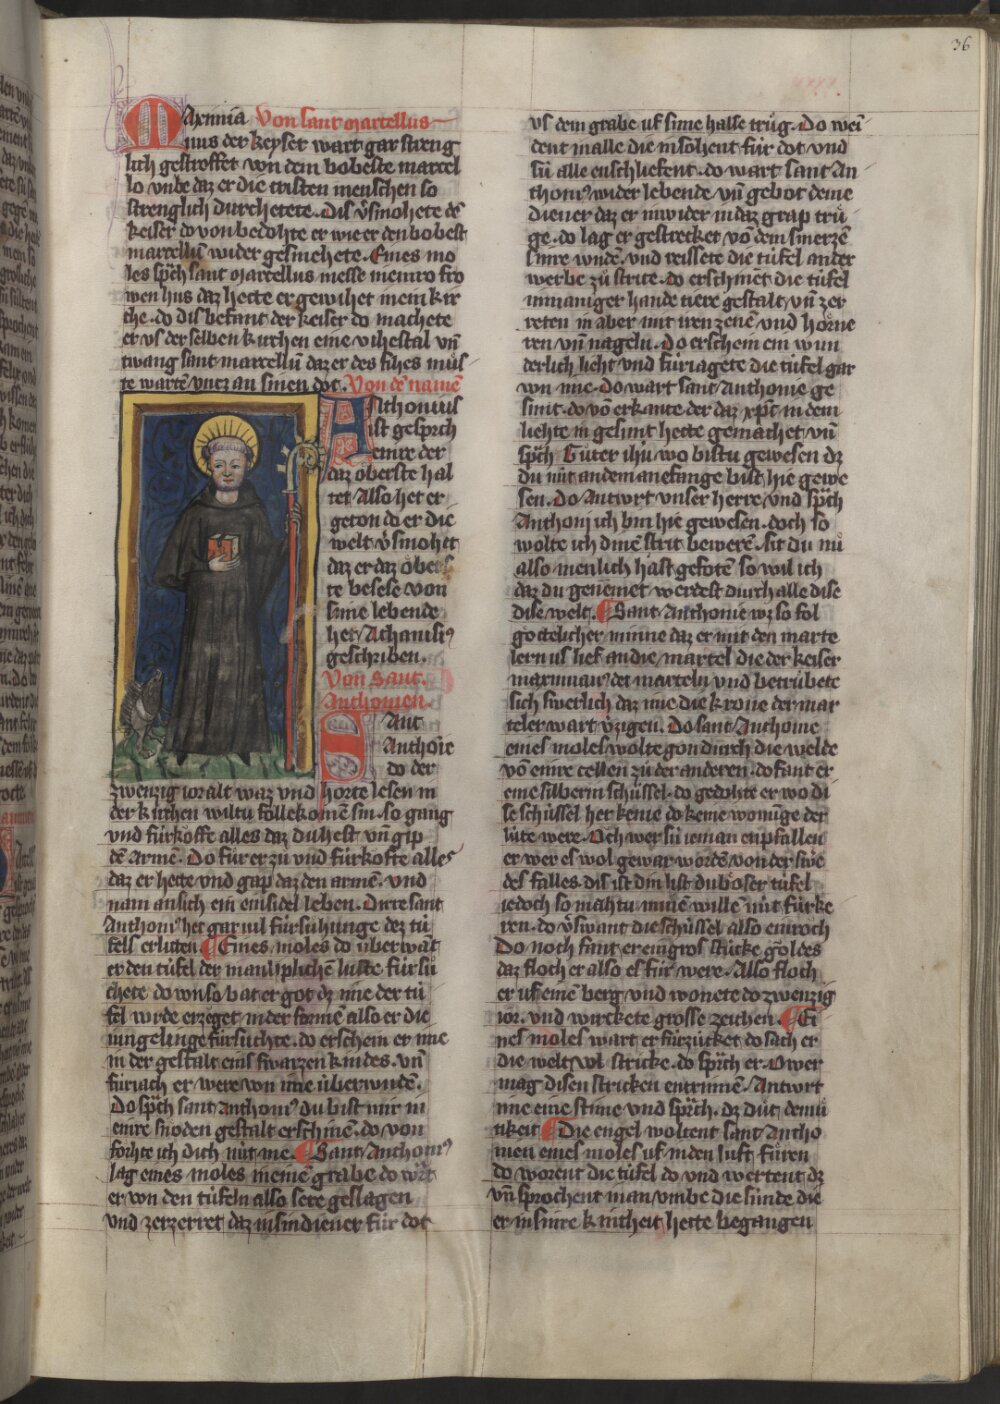 36
Maximia Von sant marcellus
nus der keyser wart gar streng
lich gestroffet von dem bobeste marcel
lo vnbe daz er die cristen menschen so
strenglich durchetete. Dis v̾smohete dē
keiser do von bedohte er wie er den bobest
marcellū wider gesmehete. Eines mo
les sp̄ch sant marcellus messe in einre fro
wen hus daz hette er gewihet in ein kir
che. do dis befant der keiser do machete
er vs der selben kirchen eine vihestal vn̄
twang sant marcellū daz er des fihes mus
te wartē vntz an sinen dot. Von dē namē
Anthonius
ist gesprch
einre der
daz oberste hal
tet Also het er
geton do er die
welt v̾smohet
daz er daz obers
te besese von
sinre lebende
het Athanasi9
geschriben.
Von Sant
Anthonien.
Sant
Anthoīe
do der
zwenzig ior alt waz vnd horte lesen in
der kirchen wiltu follekomēn sin. so gang
vnd fürkoffe alles daz du hest vn̄ gip
dē armē. Do für er zu vnd fürkofte alles
daz er hette vnd gap daz den armē. vnd
nam an sich ein einsidel leben. Dirre sant
Anthoni9 het gar vil fürsuhunge dez tü
fels erliten. Eines moles do überwāt
er den tüfel der manlsplichē luste. für sü
chete do wnso bat er got dz ime der tü
fel wrde erzöget in der forme also er die
iungelinge fürsuchte. do erschein er ime
in der gestalt eins swarzen kindes. vn̄
füriach er were von ime überwūdē.
Do sp̄ch sant Anthoni9 du bist mir in
einre snöden gestalt erschinē. do von
förhte ich dich nüt me. Sant Anthoni9
lag eines moles in einē grabe do w̄t
er von den tüfeln also sere geslagen
vnd zerzerret daz in sin diener für dot
vs dem grabe vf sime halse trüg. Do wei
dent in alle die in sohent für dot vnd
sü alle enschliefent. do wart sant An
thoni9 wider lebende vn̄ gebot deme
diener daz er in wider in daz grap trü
ge. do lag er gestrecket vō dem smerzē
sinre wnde. vnd reissete die tüfel ander
werbe zü strite. do erschinet die tüfel
in maniger hande tiere gestalt vn̄ zer
reten in aber mit iren zenē vnd hörne
ren vn̄ nageln. Do erschein ein wun
derlich licht vnd füriagete die tüfel gar
von ime. Do wart sant Anthonie ge
sunt. do vō erkante der daz xp̄t in dem
liehte in gesunt hette gemachet vn̄
sp̄ch Guter ih̄u wo bistu gewesen dz
du nüt an dem anefange bist hie gewe
sen. Do Antwrt vnser herre vnd sp̄ch
Anthoni ich bin hie gewesen. doch so
wolte ich dinē strit bewerē. sit du nü
also menlich hast gefohtē so wil ich
daz du genemet werdest durch alle dise
dise welt. Sant Anthonie wz so fol
gottelicher minne daz er mit den marte
lern us lief an die martel die der keiser
maximian9 det marteln vnd betrübete
sich swerlich daz ime die krone der mar
teler wart v̾zigen. Do sant Anthonie
eines moles wolte gon durch die welde
vō einre cellen zü der anderen. do fant er
eine silberin schüssel. do gedohte er wo di
se schüssel her keme do keine wonūge der
lüte were. Och wer sü ieman enpfallen
er wer es wol gewar wordē von der swe
des falles. dis ist din list du böser tüfel
iedoch so maht du minē willē nüt fürke
ren. do v̾swant die schüssel also ein roch
Do noch fant er ein gros stücke goldes
daz floch er also es für were. Also floch
er uf einē berg vnd wonete do zwenzig
ior. vnd wirckete grosse zeichen. Ei
nes moles wart er fürzücket do sach er
die welt vol stricke. do sp̄ch er. Ower
mag disen stricken entrinnē. Antwort
ime eine stime vnd sp̄ch. dz düt demü
tikeit Die engel woltent sant Antho
nien eines moles vf in den luft füren
do worent die tüfel do vnd wertent dz
vn̄ sprochent man vmbe die sünde die
er in sinre kintheit hette begangen